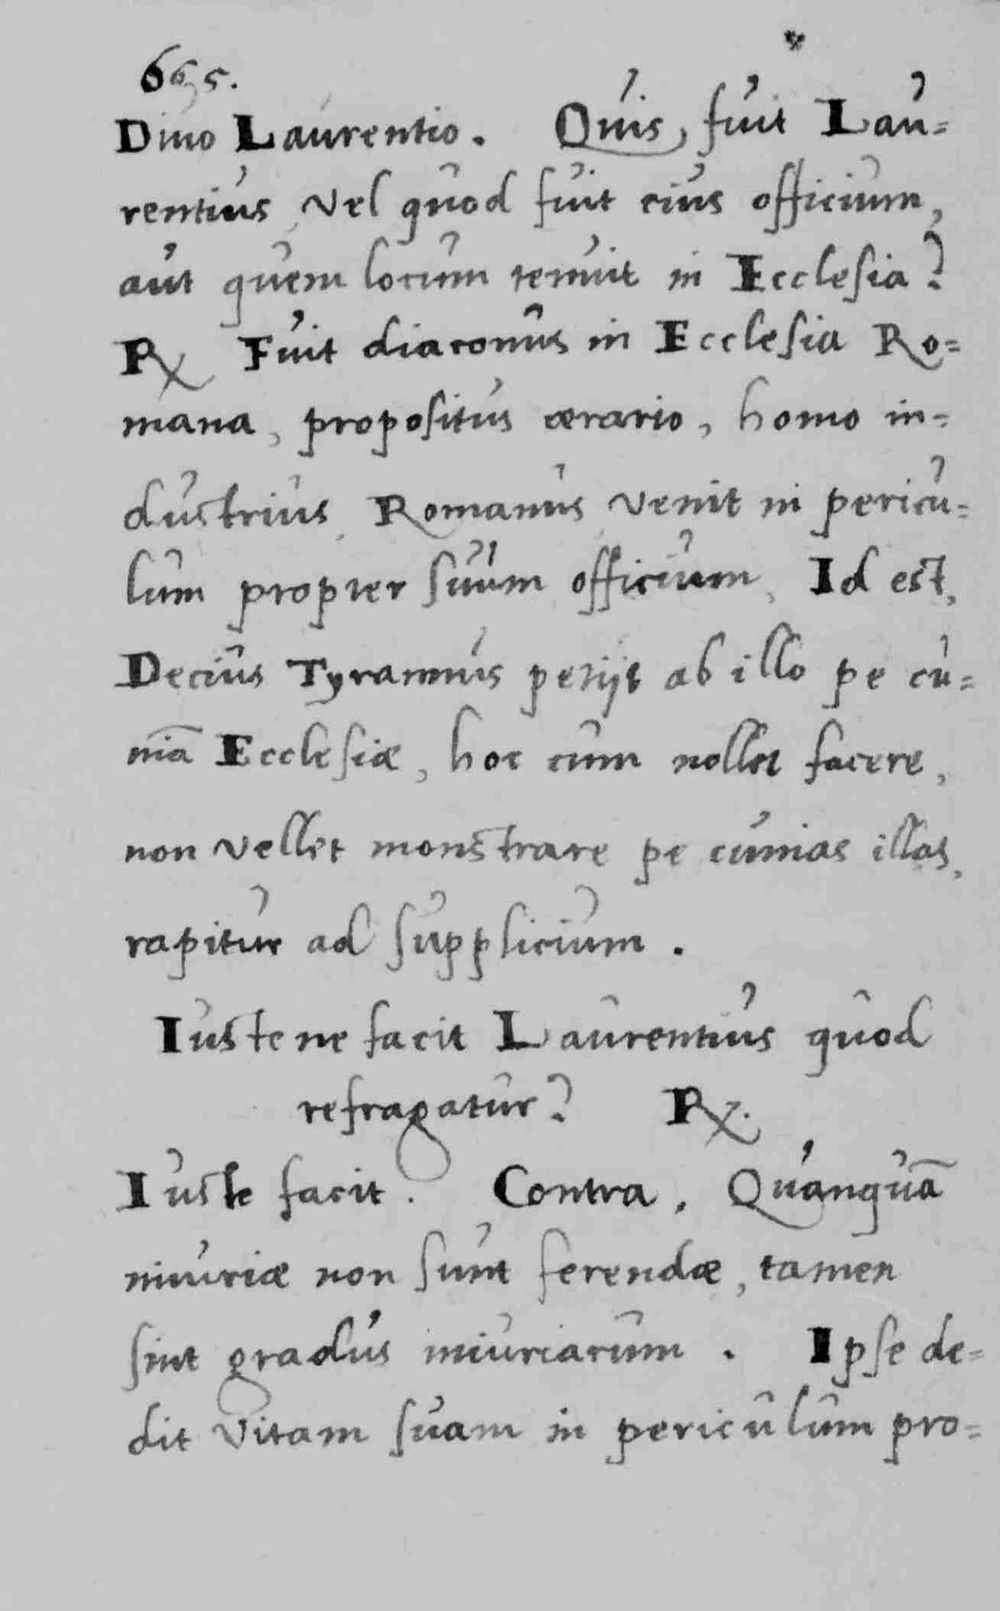 665.
Diuo Laurentio. Quis fuit Lau=
rentius, vel quod fuit eius officium,
aut quem locum tenuit in Ecclesia?
R Fuit diaconus in Ecclesia Ro=
mana, propositus ærario, homo in=
dustrius, Romanus venit in pericu=
lum propter suum officium, Id est,
Decius Tyrannus petijt ab illo pe cu=
niā Ecclesiæ, hoc cum nollet facere,
non vellet monstrare pe cunias illas,
rapitur ad supplicium.
Iuste ne facit Laurentius quod
refragatur? R.
Iuste facit. Contra. Quanquā
iniuriæ non sunt ferendæ, tamen
sunt gradus iniuriarum. Ipse de=
dit vitam suam in periculum pro=